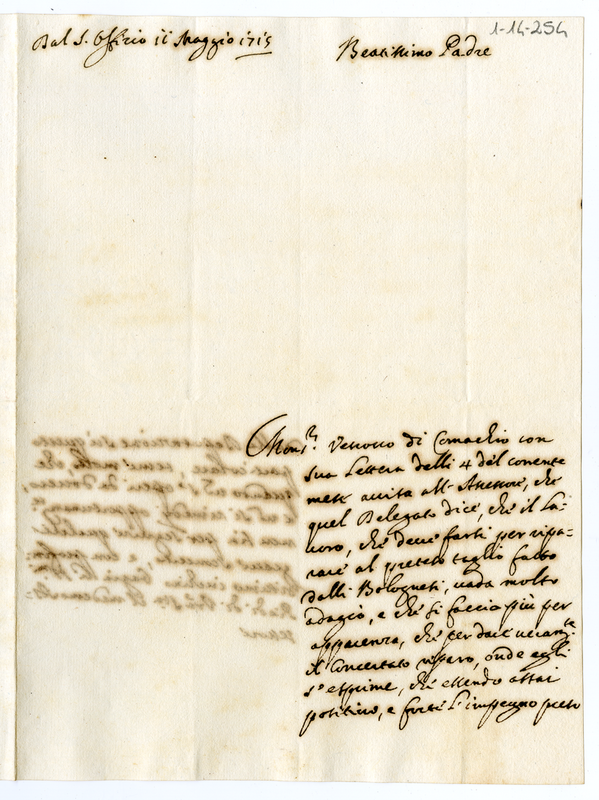 1-14-254
Dal S. Offizio 11 Maggio 1715
Beatissimo Padre
Mons.r Vescovo di Comachio con
sua Lettera delli 4 del corrente
mese avisa all' Assessore, che
quel Delegato dice, che il La=
voro, che deve farsi per ripa=
rare al preteso taglio fatto
dalli Bolognesi, vada molto
adagio, e che si faccia più per
apparenza, che per dare
il Concertato riparo, onde egli
s'esprime, che essendo assai
politico, e forte l'impegno preso